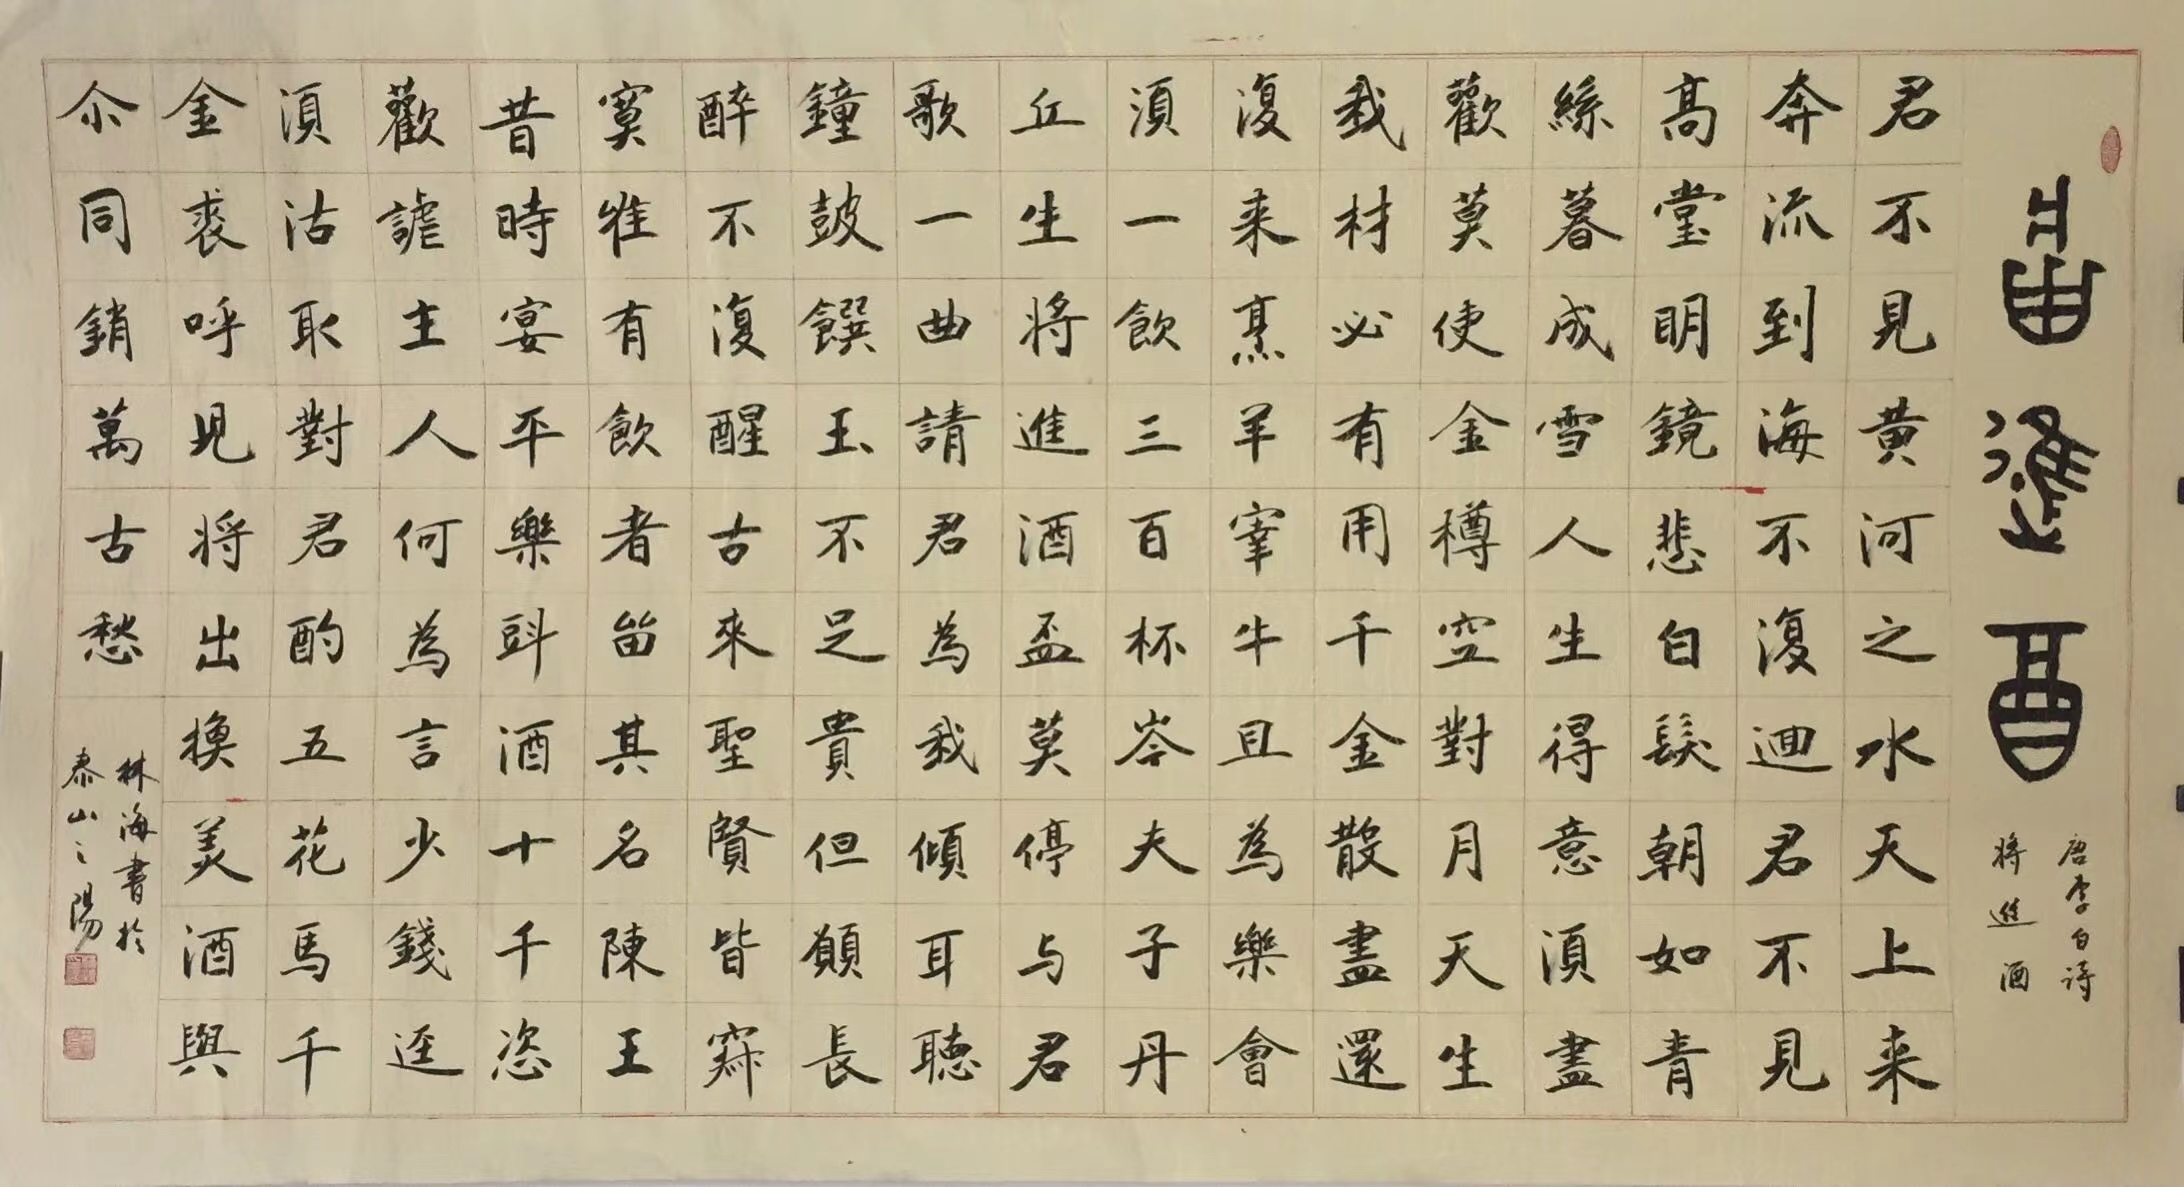 將進酒
唐李白詩
将進酒
君不見黄河之水天上来
奔流到海不復迴君不見
高堂明鏡悲白髮朝如青
絲暮成雪人生得意須盡
歡莫使金樽空對月天生
我材必有用千金散盡還
復来烹羊宰牛且為樂會
須一飲三百杯岑夫子丹
丘生将進酒盃莫停与君
歌一曲請君為我傾耳聽
鐘鼓饌玉不足貴但願長
醉不復醒古來聖賢皆寂
寞惟有飲者留其名陳王
昔時宴平樂㪷酒十千恣
歡謔主人何為言少錢逕
須沽取對君酌五花馬千
金裘呼兒将出換美酒與
尒同銷萬古愁
林海書於
泰山之陽